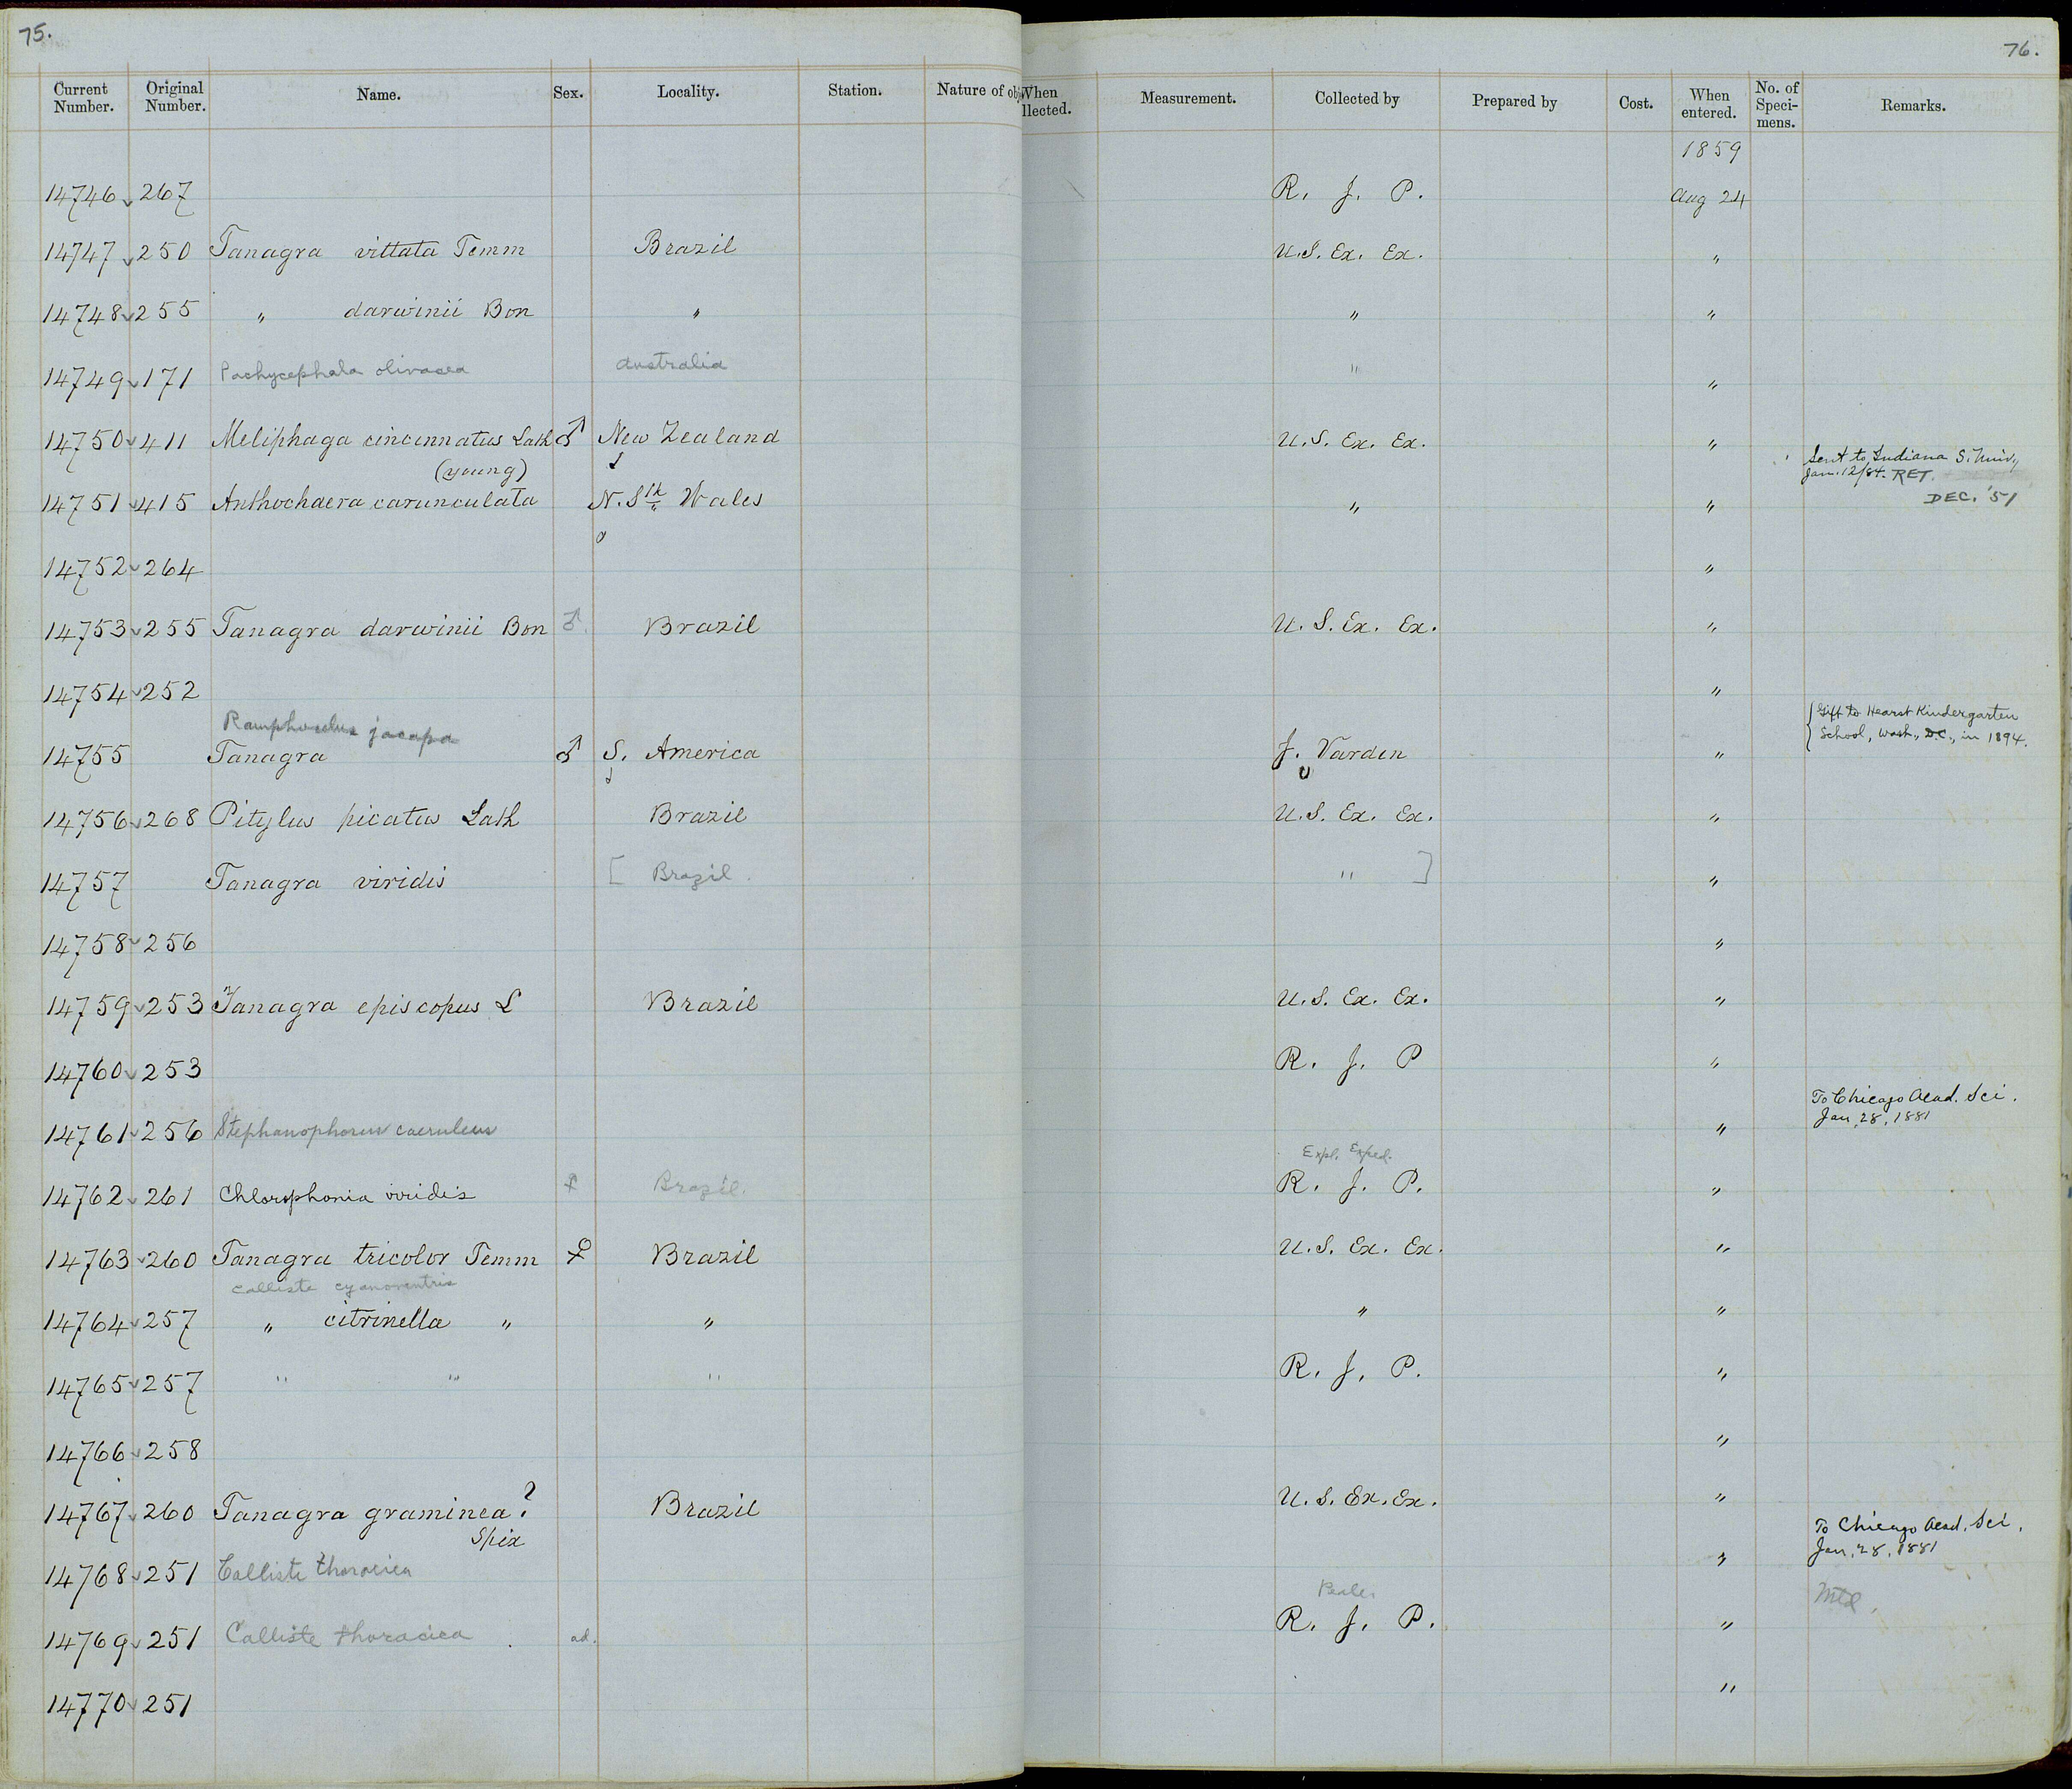 75.
76.
Current Number. Original Number. Name. Sex. Locality. Station. Nature of obj When llected. Measurement. Collected by Prepared by Cost. When entered. No. of Speci-mens. Remarks.
1859
14746 267 R. J. P. Aug 24
14747 250 Tanagra vittata Temm Brazil U.S. Ex. Ex. "
14748 255 " darwinii Bon " " "
14749 171 Pachycephala olivacea Australia " "
14750 411 Meliphaga cincinnatus Lath ♂ New Zealand U.S. Ex. Ex. "
(young)
Sent to Indiana S. Univ,
Jan. 12/84. RET.
DEC. '51
14751 415 Anthochaera carunculata N. Sth Wales " "
14752 264 "
14753 255 Tanagra darwinii Bon ♂ Brazil U. S. Ex. Ex. "
14754 252 "
Ramphocelus jacapa
Gift to Hearst Kindergarten
School, Wash., D.C., in 1894.
14755 Tanagra ♂ S. America J. Varden "
14756 268 Pitylus picatus Lath Brazil U.S. Ex. Ex. "
14757 Tanagra viridis [ Brazil. " ] "
14758 256 "
14759 253 Tanagra episcopus L Brazil U.S. Ex. Ex. "
14760 253 R. J. P "
To Chicago Acad. Sci.
Jan. 28, 1881
14761 256 Stephanophorus caeruleus "
Expl. Exped.
14762 261 Chlorophonia viridis ♀ Brazil. R. J. P. "
14763 260 Tanagra tricolor Temm ♀ Brazil U.S. Ex. Ex. "
Calliste cyanoventris
14764 257 " citrinella " " " "
14765 257 " " " R. J. P. "
14766 258 "
14767 260 Tanagra graminea? Brazil U.S. Ex. Ex. "
Spix
To Chicago Acad. Sci.
Jan. 28, 1881
14768 251 Calliste thoracica "
Peale. Mtd.
14769 251 Calliste thoracica ad. R. J. P. "
14770 251 "